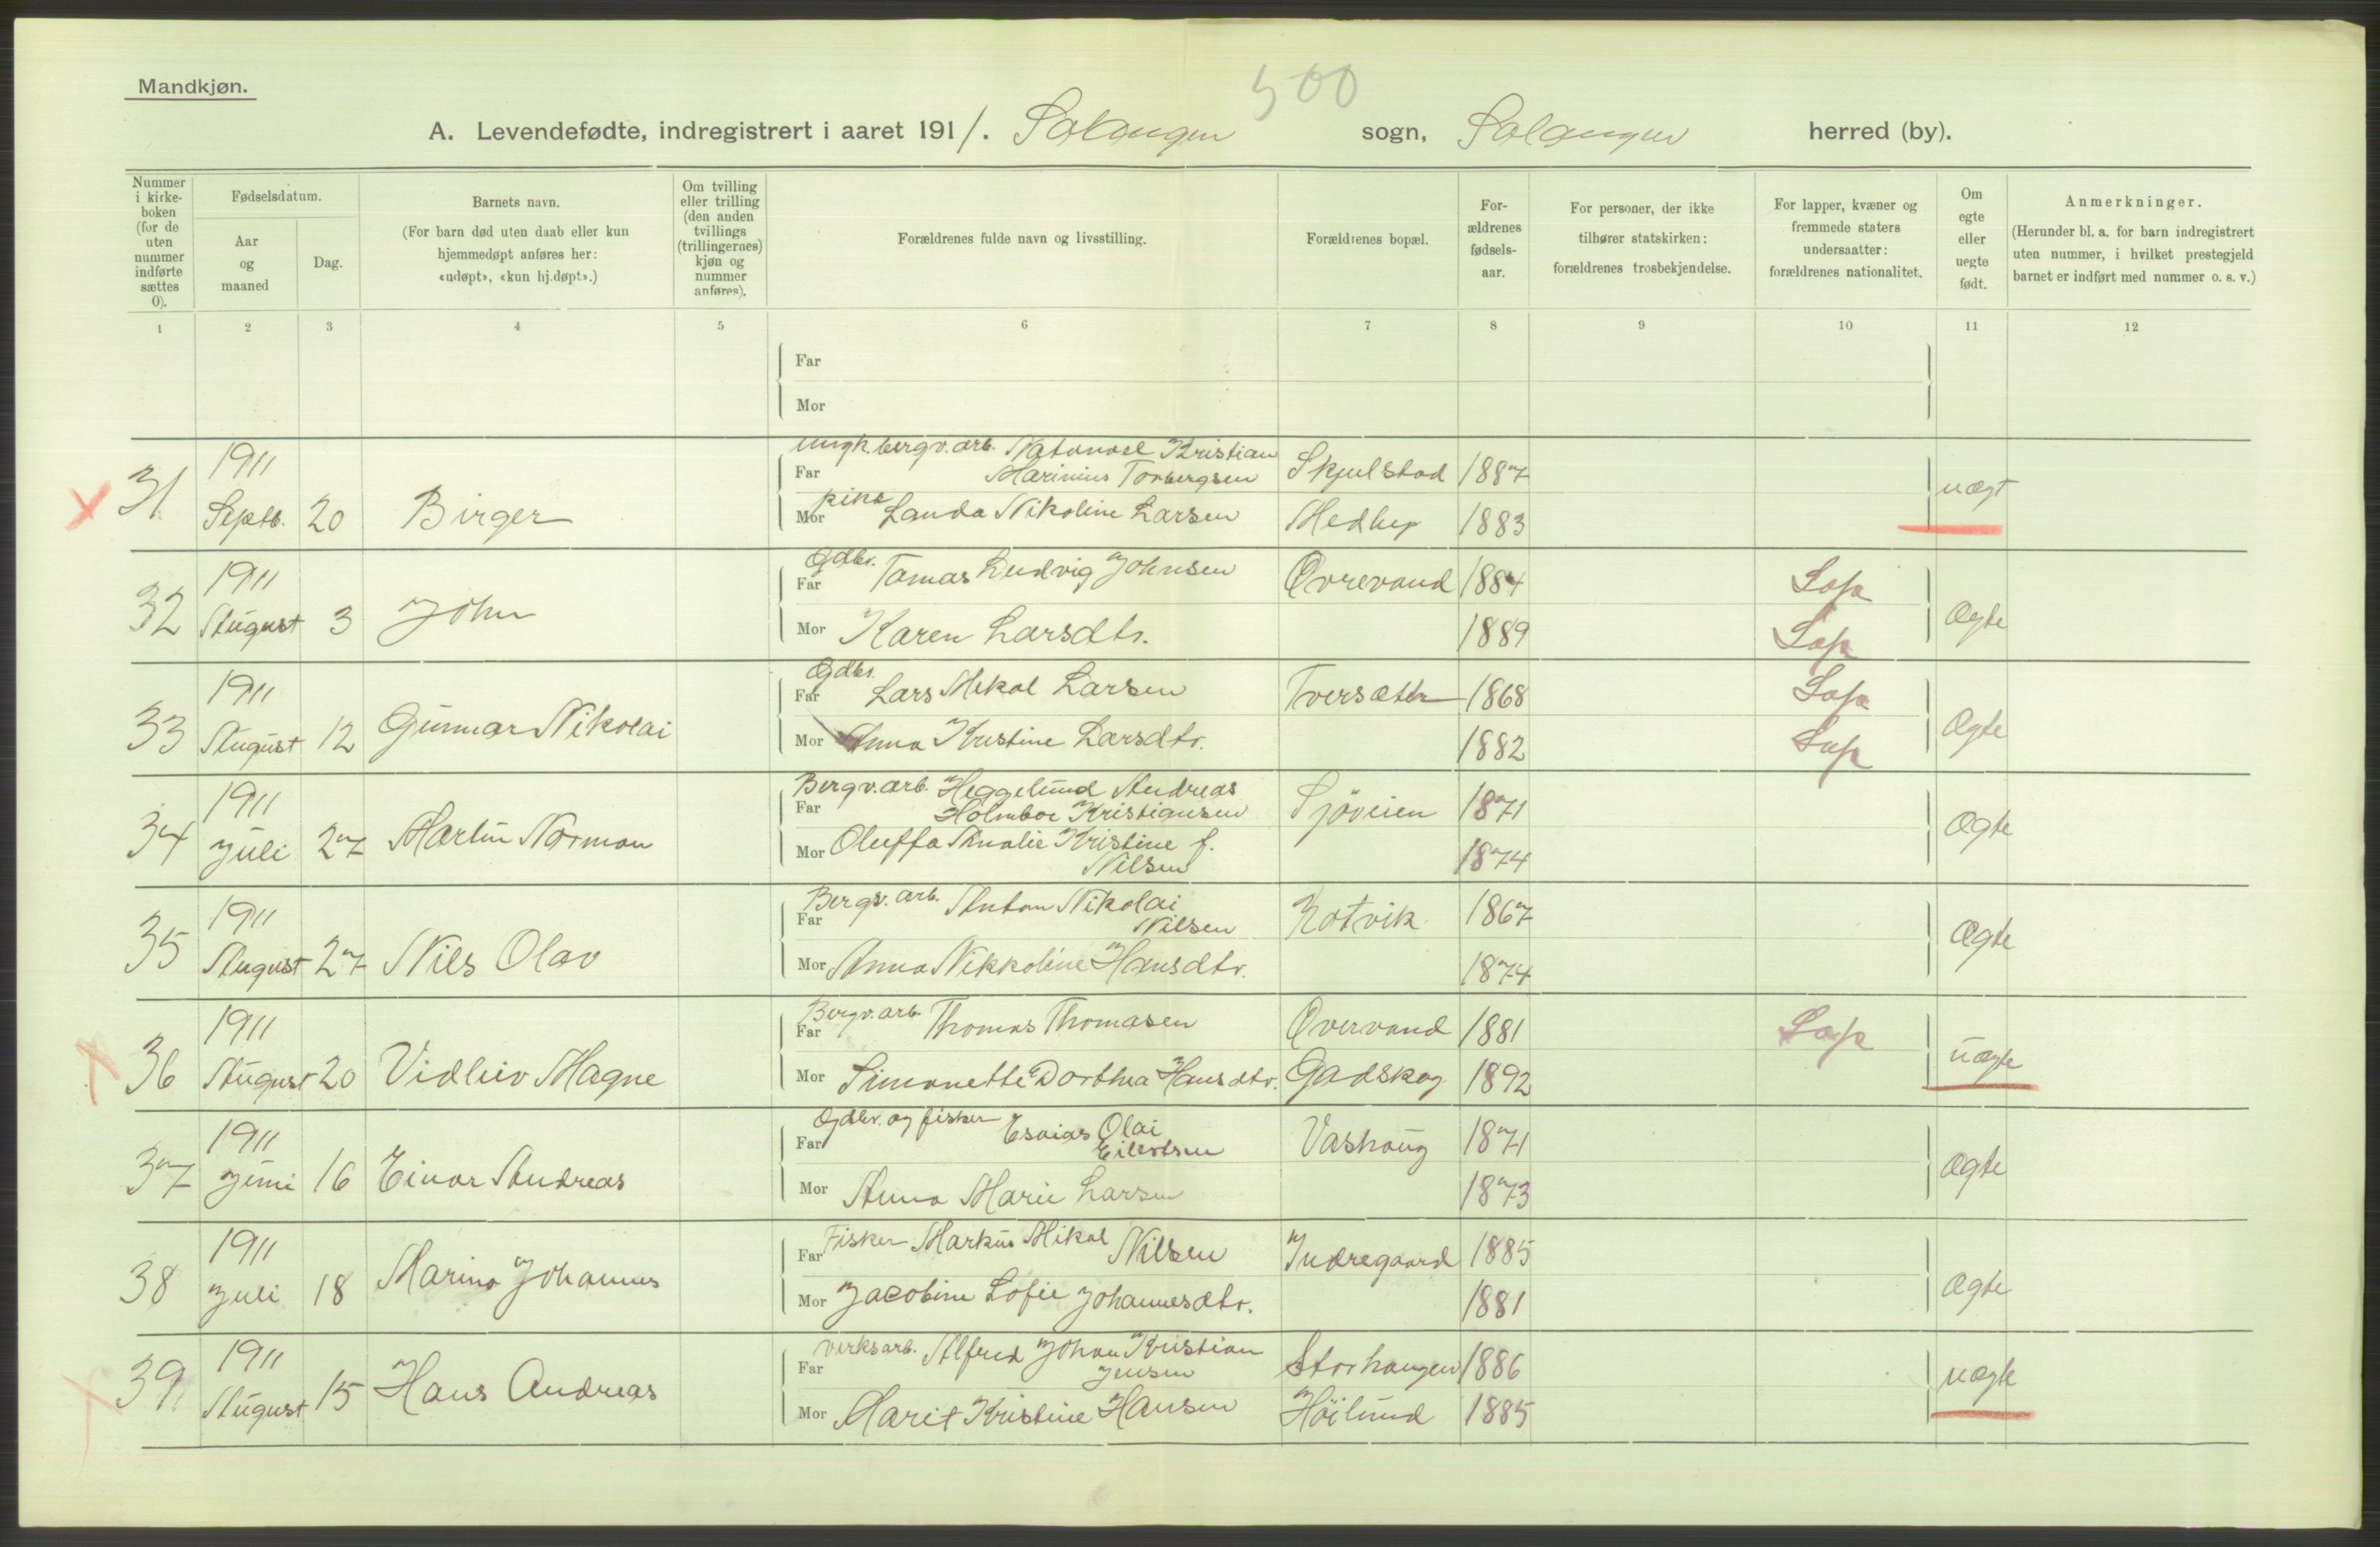 500
Mandkjøn.
A. Levendefødte, indregistrert i aaret 1911. Salangen sogn, Salangen herred (by).
Nummer i kirke-boken (for de uten nummer indførte sættes 0).
Fødselsdatum.
Aar og maaned
Dag.
Barnets navn.
(For barn død uten daab eller kun hjemmedøpt anføres her: «udøpt», «kun hj.døpt».)
Om tvilling eller trilling (den anden tvillings (trillingernes) kjøn og nummer anføres).
Forældrenes fulde navn og livsstilling.
Forældrenes bopæl.
For-ældrenes fødsels-aar.
For personer, der ikke tilhører statskirken: forældrenes trosbekjendelse.
For lapper, kvæner og fremmede staters undersaatter: forældrenes nationalitet.
Om egte eller uegte født.
Anmerkninger.
(Herunder bl. a. for barn indregistrert uten nummer, i hvilket prestegjeld barnet er indført med nummer o. s. v.)
1 2 3 4 5 6 7 8 9 10 11 12
Far
Mor
31 1911 Septb. 20 Birger
Far ungk. bergv. arb. Natanael Kristian Marinius Torbergsen Skjulstad 1887 uægt
Mor pike Lauda Nikoline Larsen Medby 1883
32 1911 August 3 John
Far Gdbr. Tomas Ludvig Johnsen Øvrevand 1884 Lap Ægte
Mor Karen Larsdtr. 1889 Lap
33 1911 August 12 Gunnar Nikolai
Far Gdbr. Lars Mikal Larsen Tversæter 1868 Lap Ægte
Mor Anna Kristine Larsdtr. 1882 Lap
34 1911 Juli 27 Martin Norman
Far Bergv. arb. Heggelund Andreas Holmboe Kristiansen Sjøveien 1871 Ægte
Mor Oluffa Amalie Kristine f. Nilsen 1874
35 1911 August 27 Nils Olav
Far Bergv. arb. Anton Nikolai Nilsen Rotvik 1867 Ægte
Mor Anna Nikkoline Hansdtr. 1874
36 1911 August 20 Vidliv Magne
Far Bergv. arb. Thomas Thomasen Øvervand 1881 Lap uægte
Mor Simonette Dorthea Hansdtr. Gadskog 1892
37 1911 Juni 16 Einar Andreas
Far Gdbr. og fisker Esaias Olai Eilertsen Vashaug 1871 Ægte
Mor Anna Marie Larsen 1873
38 1911 Juli 18 Marino Johannes
Far Fisker Markus Mikal Nilsen Indregaard 1885 Ægte
Mor Jacobine Sofie Johannesdtr. 1881
39 1911 August 15 Hans Andreas
Far verksarb. Alfred Johan Kristian Jensen Storhaugen 1886 uægte
Mor Marit Kristine Hansen Høilund 1885